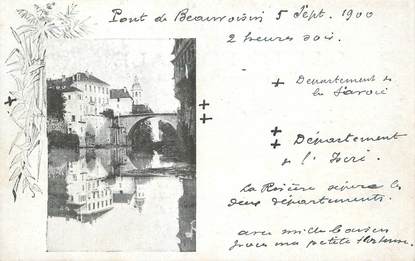 Pont de Beauvoisin 5 Sept. 1900
2 heures soir.
+ Département de
la Savoie
‡ Département
de l'Isère.
La Rivière sépare les
deux départements.
avec
ma petite